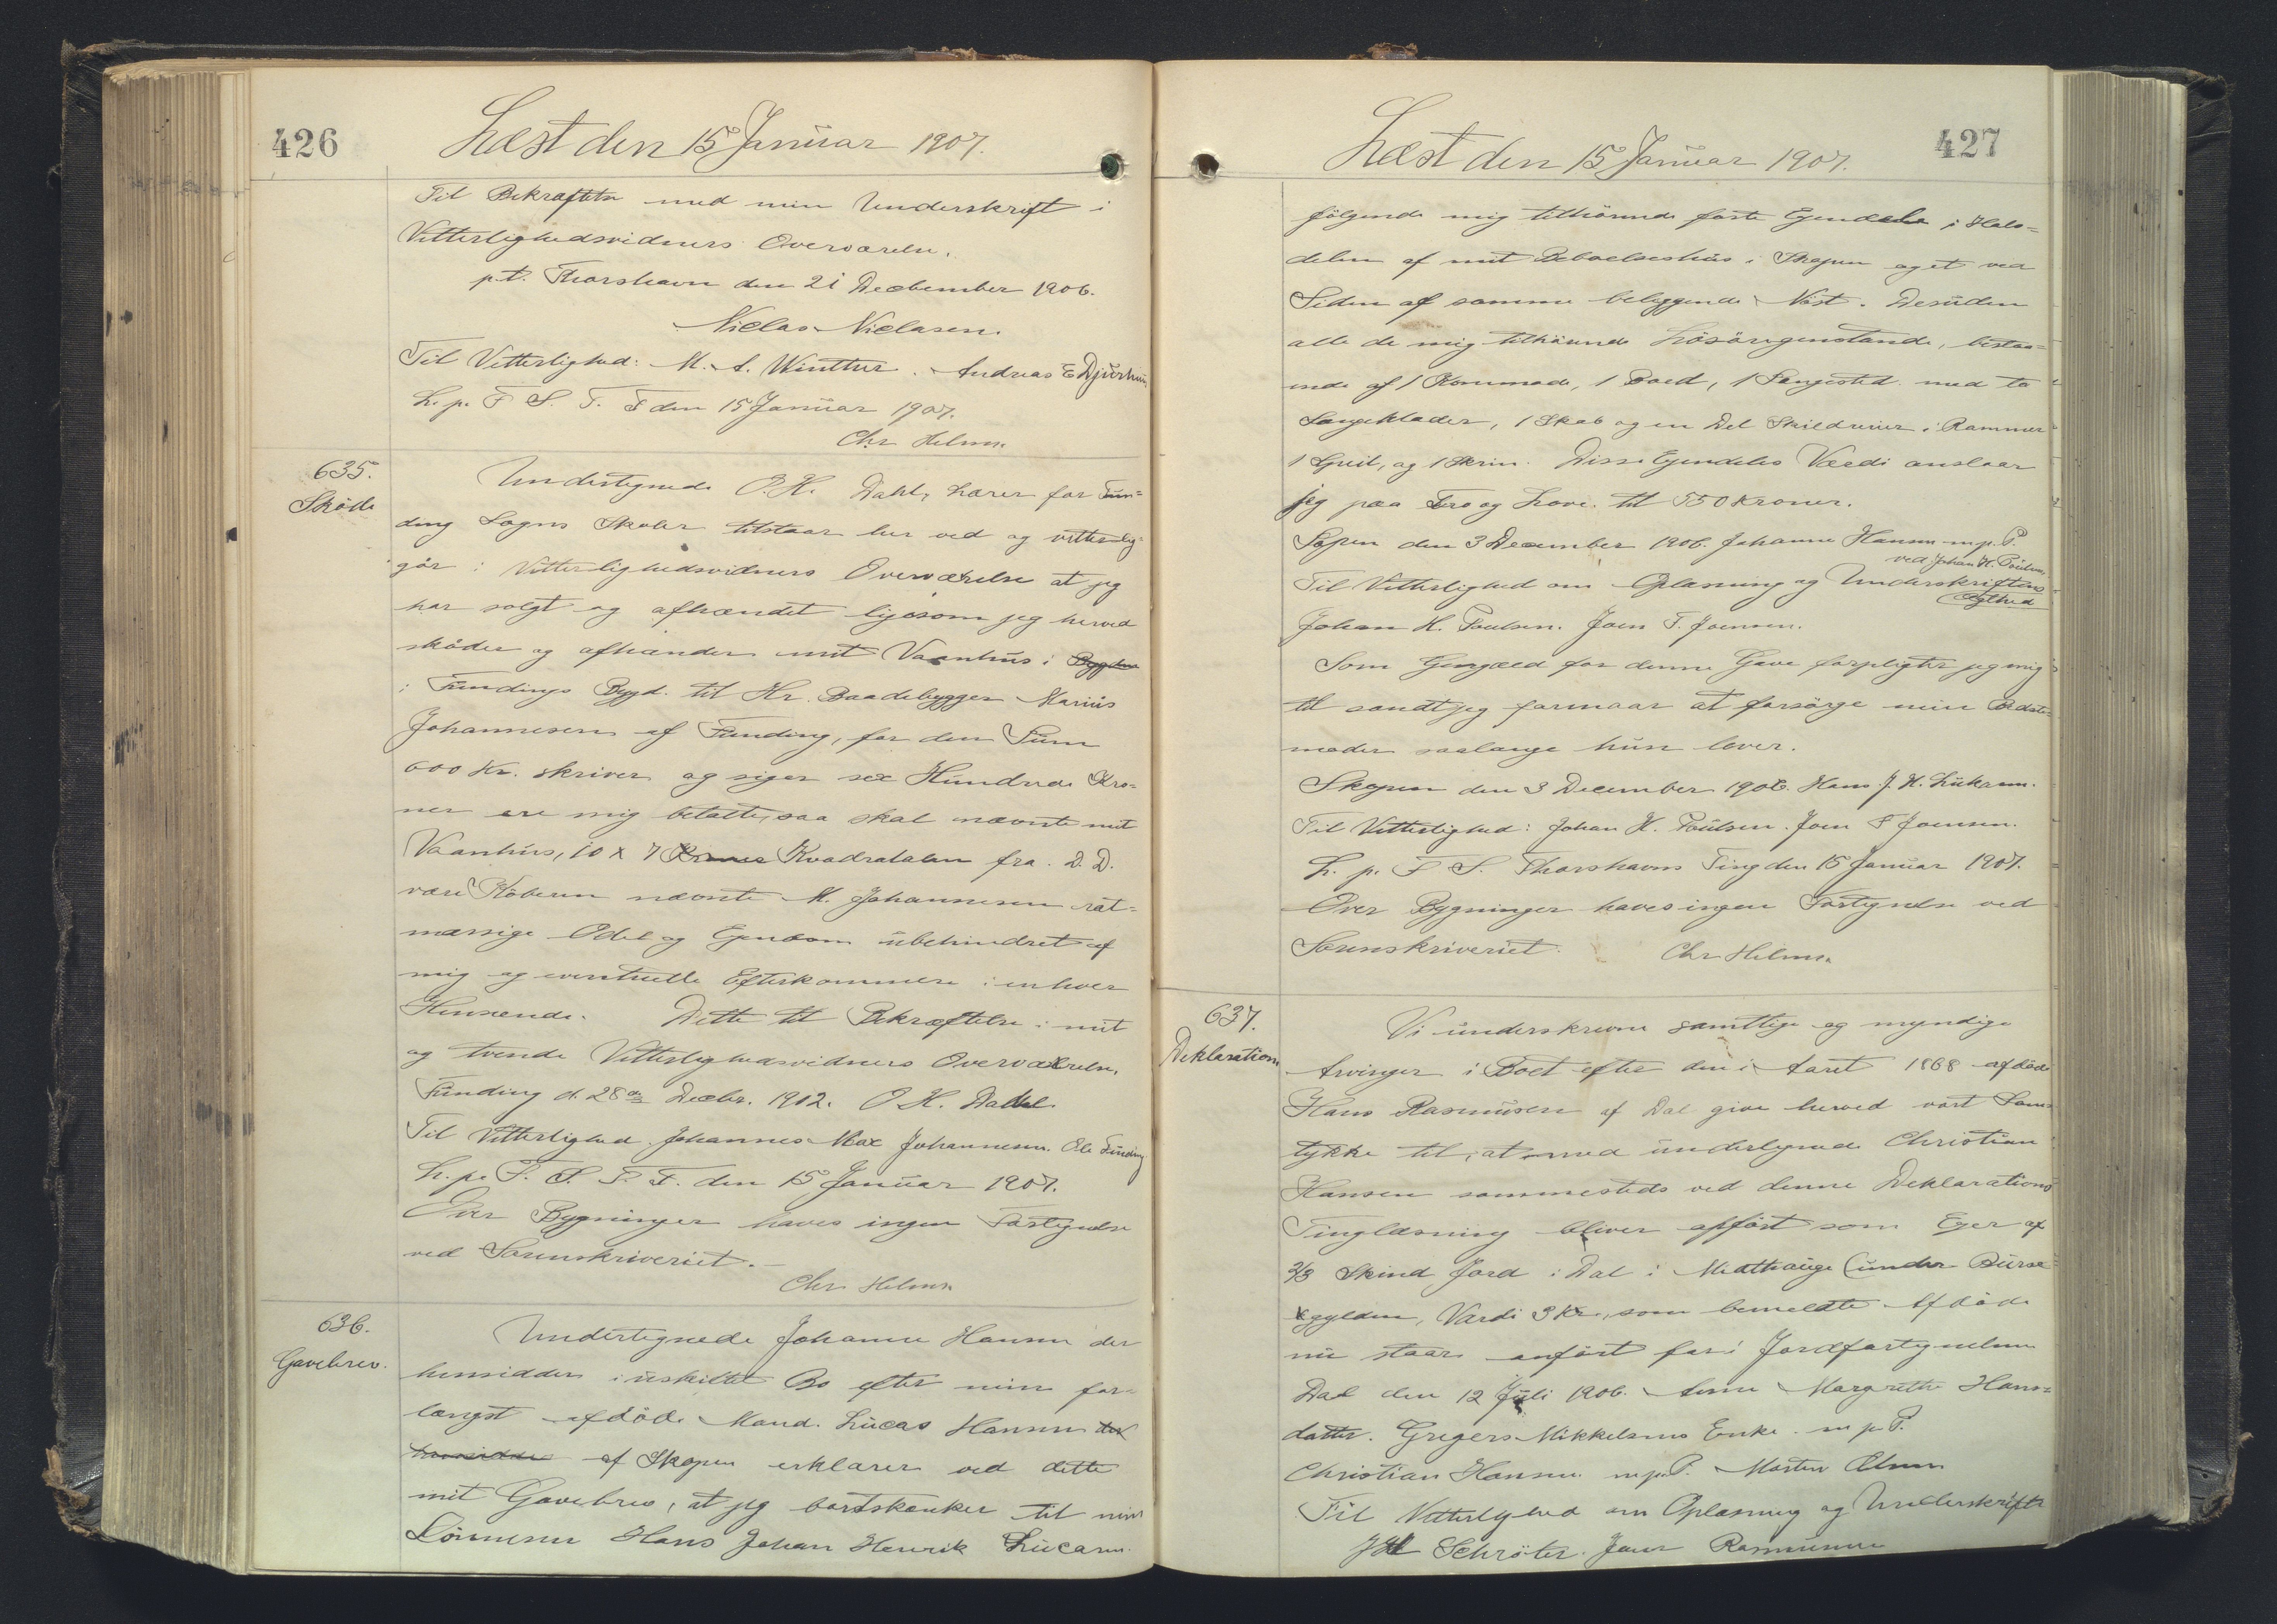 426
Læst den 15 Januar 1907.
Til Bekræftelse med min Underskrift i
Vitterlighedsvidners Overværelse.
p.t. Thorshavn den 21 Decbember 1906.
Niclas Niclasen.
Til Vitterlighed: M. A. Winther. Andreas E Djurhuus
L. p. F S. T. T den 15 Januar 1907.
Chr Helmsn
635.
Skøde
Undertegnede O. H. Dahl, Lærer for Fun=
ding Sogns Skoler tilstaar her ved og vitterlig=
gör i Vitterlighedsvidners Overværelse at jeg
har solgt og afhændet ligesom jeg herved
skøder og afhænder mit Vaanhus i
i Fundings Bygd. til Hr. Baadebygger Marius
Johannesen af Funding, for den Sum
600 Kr. skriver og siger sex Hundrede Kro=
ner ere mig betalte, saa skal nævnte mit
Vaanhus, 10 x 7 Kvadratalen fra. D. D.
være Køberen nævnte M. Johannesen ret=
mæssige Odel og Ejendom ubehindret af
mig og eventuelle Efterkommere i enhver
Henseende. Dette til Bekræftelse i mit
og tvende Vitterlighedsvidners Overværelse.
Funding d. 28de Decbr. 1912. O H. Dahl
Til Vitterlighed. Johannes Max Johannesen. Ole Funding
L. p. F. S. T. T. den 15 Januar 1907.
Over Bygninger haves ingen Fortegnelse
ved Sorenskriveriet.
Chr Helmsn
636.
Gavebrev.
Undertegnede Johanne Hansen der
hensidder i uskiftet Bo efter min for=
længst afdöde Mand. Lucas Hansen der
hensidder af Skopen erklærer ved dette
mit Gavebrev, at jeg bortskænker til min
Sönnesön Hans Johan Henrik Lucasen.
427
Læst den 15 Januar 1907.
fölgende mig tilhörende faste Ejendele i Halv=
delen af mit Beboelseshus i Skopen og et ved
Siden af samme beliggende Nöst. Desuden
alle de mig tilhörende Lösöregenstande, bestaa=
ende af 1 Kommode, 1 Bord, 1 Sengested med to
Sengeklæder, 1 Skab og en Del Skilderier i Rammer
1 Speil, og 1 Skrin. Disse Ejendeles Værdi anslaar
jeg paa Tro og Love. til 550 Kroner.
Sopen den 3 December 1906. Johanne Hansen m. p. P.
ved Johan H. Poulsen,
Til Vitterlighed om Oplæsning og Underskriftens
Ægthed
Johan H. Poulsen. Joen F. Joensen.
Som Gengæld for denne Gave forpligter jeg mig
til saavidt jeg formaar at forsörge min Bedste=
moder saalænge hun lever.
Skopen den 3 December 1906. Hans J. H. Lukasen.
Til Vitterlighed: Johan H. Poulsen. Joen F Joensen.
L. p. F S. Thorshavns Ting den 15 Januar 1907.
Over Bygninger haves ingen Fortegnelse ved
Sorenskriveriet. Chr Helmsn
637.
Deklaration
Vi underskrevne samtlige og myndige
Arvinger i Boet efter den i Aaret 1868 afdöde
Hans Rasmusen af Dal give herved vort Sam=
tykke til, at med undertegnede Christian
Hansen sammesteds ved denne Deklarations
Tinglæsning bliver opfört som Ejer af
2/3 Skind Jord i Dal i Midthauge (under Bursk
gylden, Værdi 3 Kr., som bemeldte Afdöde
nu staar anfört for i Jordfortegnelsen
Dal den 12 Juli 1906. Anne Margrethe Hans=
datter. Gregers Mikkelsens Enke. m p. P.
Christian Hansen m. p. P. Morten Olsen
Til Vitterlighed om Oplæsning og Underskrift
JH Schröter. Jens Rasmussen